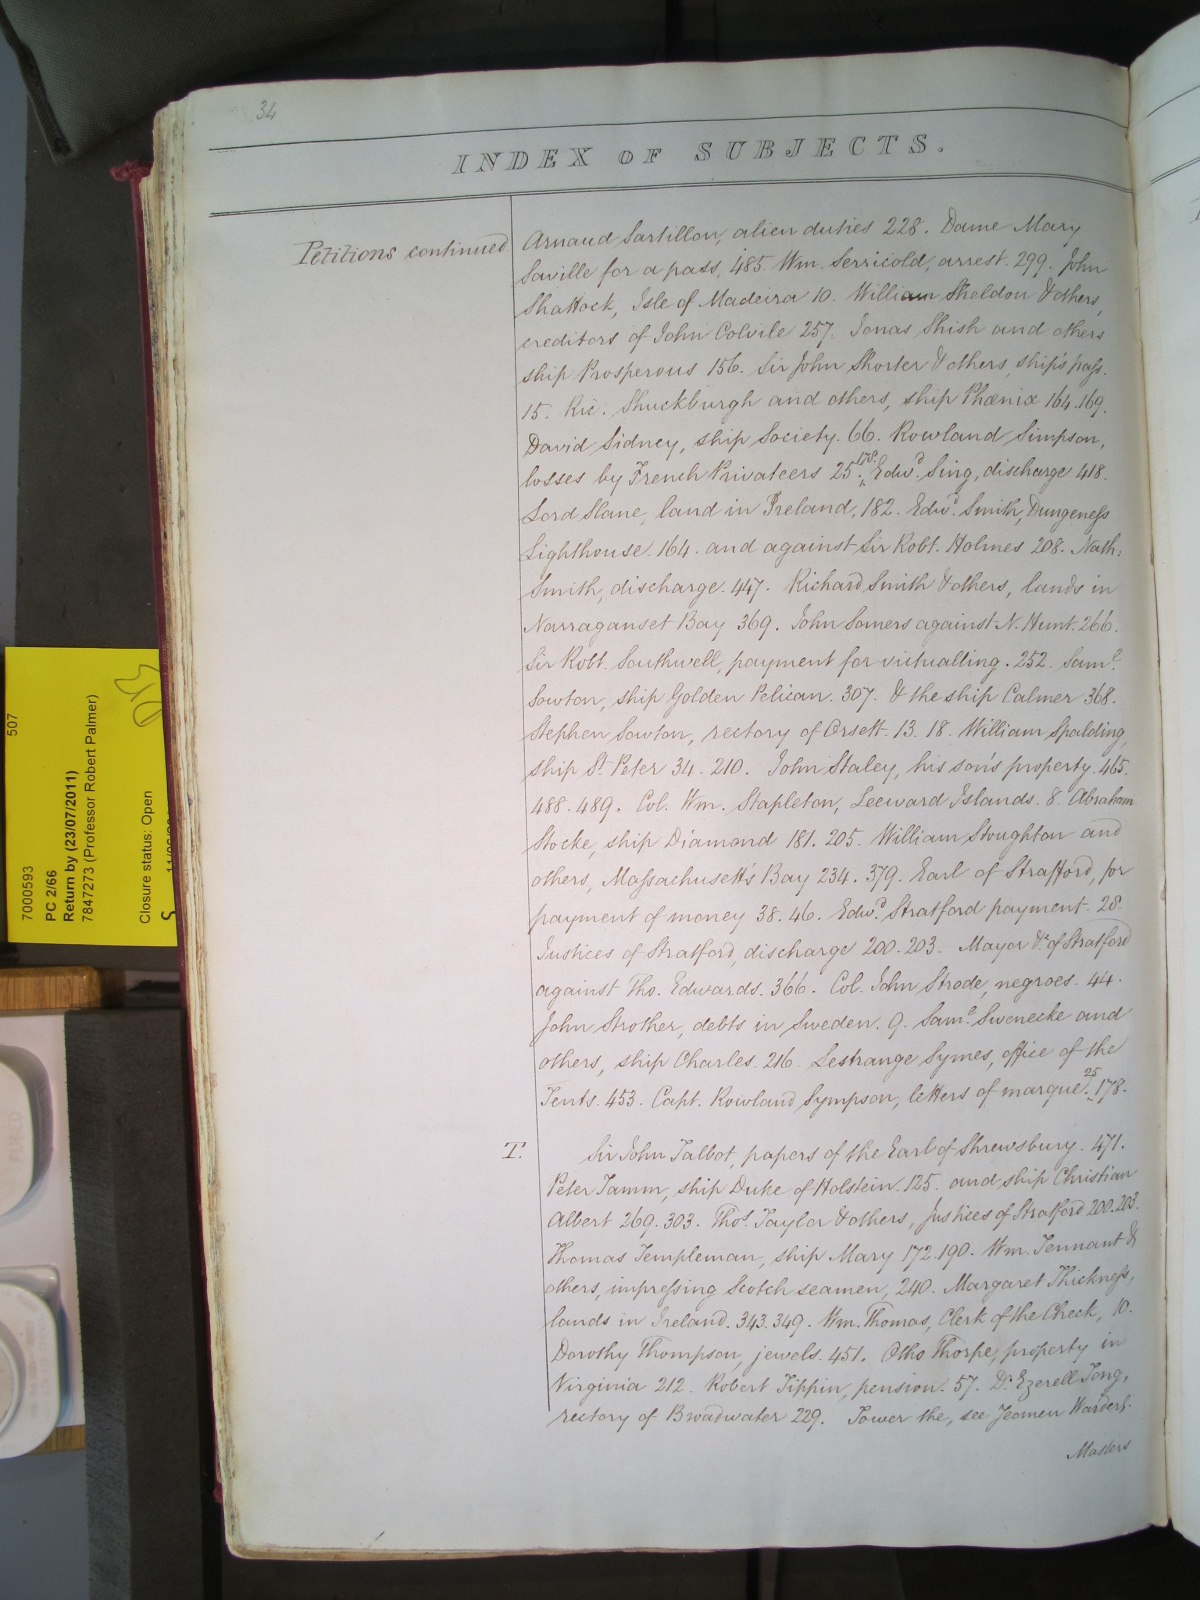 34
INDEX OF SUBJECTS.
Petitions continued
Arnaud Sartillon, alien duties 228. Dame Mary
Saville for a pass, 485. Wm. Serricold, arrest. 299. John
Shattock, Isle of Madeira 10. William Sheldon & others,
creditors of John Colvile 257. Jonas Shish and others
ship Prosperous 156. Sir John Shorter & others, ship's pass.
15. Ric. Shuckburgh and others, ship Phœnix 164.169.
David Sidney, ship Society. 66. Rowland Simpson,
losses by French Privateers 25.178. Edwd. Sing, discharge 418.
Lord Slane, land in Ireland, 182. Edwd. Smith, Dungeness
Lighthouse. 164. and against Sir Robt. Holmes 208. Nath:
Smith, discharge. 447. Richard Smith & others, lands in
Narraganset Bay 369. John Somers against N. Hunt. 266.
Sir Robt. Southwell, payment for victualling. 252. Saml.
Sowton, ship Golden Pelican. 307. & the ship Calmer 368.
Stephen Sowton, rectory of Orsett. 13. 18. William Spalding,
ship St. Peter 34. 210. John Staley, his son's property. 465.
488. 489. Col. Wm. Stapleton, Leeward Islands. 8. Abraham
Stocke, ship Diamond 181. 205. William Stoughton and
others, Massachusett's Bay 234. 379. Earl of Strafford, for
payment of money 38. 46. Edwd. Stratford payment. 28.
Justices of Stratford, discharge 200. 203. Mayor &c. of Stratford
against Tho. Edwards. 366. Col. John Strode, negroes. 44.
John Strother, debts in Sweden. 9. Saml. Swenecke and
others, ship Charles. 216. Lestrange Symes, office of the
Tents. 453. Capt. Rowland Sympson, letters of marque. 25. 178.
T.
Sir John Talbot, papers of the Earl of Shrewsbury. 471.
Peter Tamm, ship Duke of Holstein. 125. and ship Christian
Albert 269. 303. Thos. Taylor & others, Justices of Stratford 200.203.
Thomas Templeman, ship Mary 172.190. Wm. Tennant &
others, impressing Scotch seamen, 240. Margaret Thickness,
lands in Ireland. 343. 349. Wm. Thomas, Clerk of the Check, 10.
Dorothy Thompson, jewels. 451. Otho Thorpe, property in
Virginia 212. Robert Tippin, pension. 57. Dr. Ezerell Tong,
rectory of Broadwater 229. Tower the, see Yeomen Warders.
Masters
507
7000593
PC 2/66
Return by (23/07/2011)
7847273 (Professor Robert Palmer)
Closure status: Open